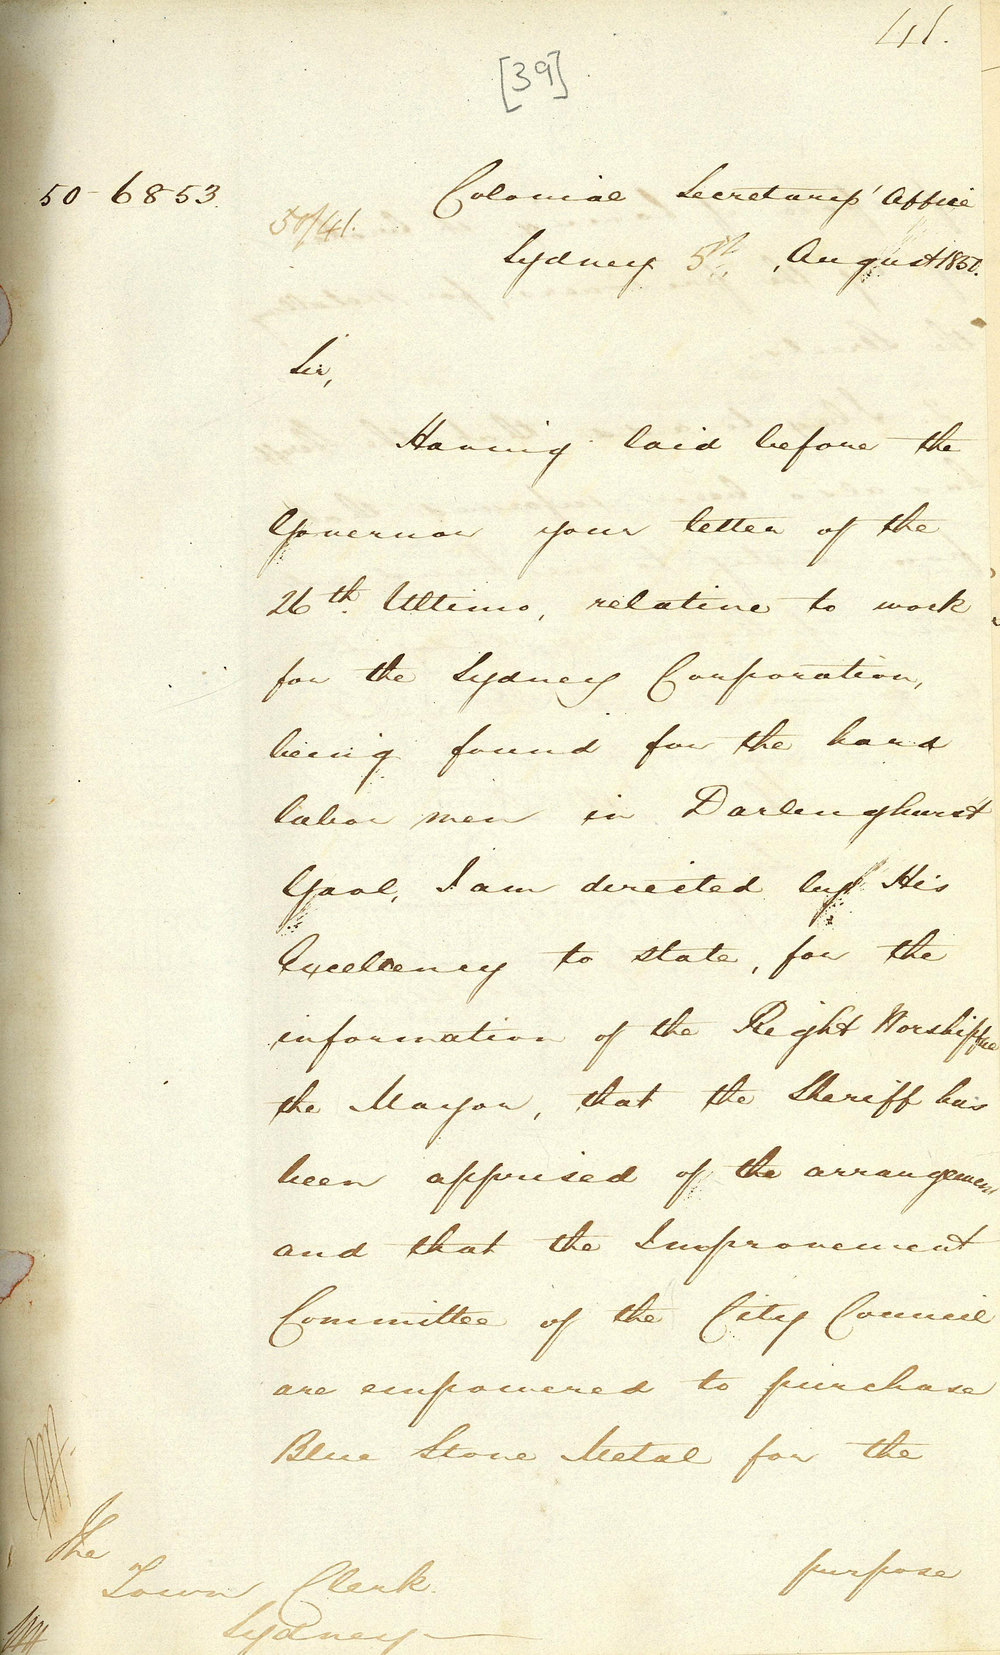 41.
[39]
50-6853.
Colonial Secretary's Office
50/41.
Sydney 5th, August 1850.
Sir,
Having laid before the
Governor your letter of the
26th. Ultimo, relative to work
for the Sydney Corporation,
being found for the hard
labor men in Darlinghurst
Gaol, I am directed by His
Excellency to state, for the
information of the Right Worshipful
the Mayor, that the Sheriff has
been apprised of the arrangement
and that the Improvement
Committee of the City Council
are empowered to purchase
Blue Stone Metal for the
purpose
The
Town Clerk.
Sydney